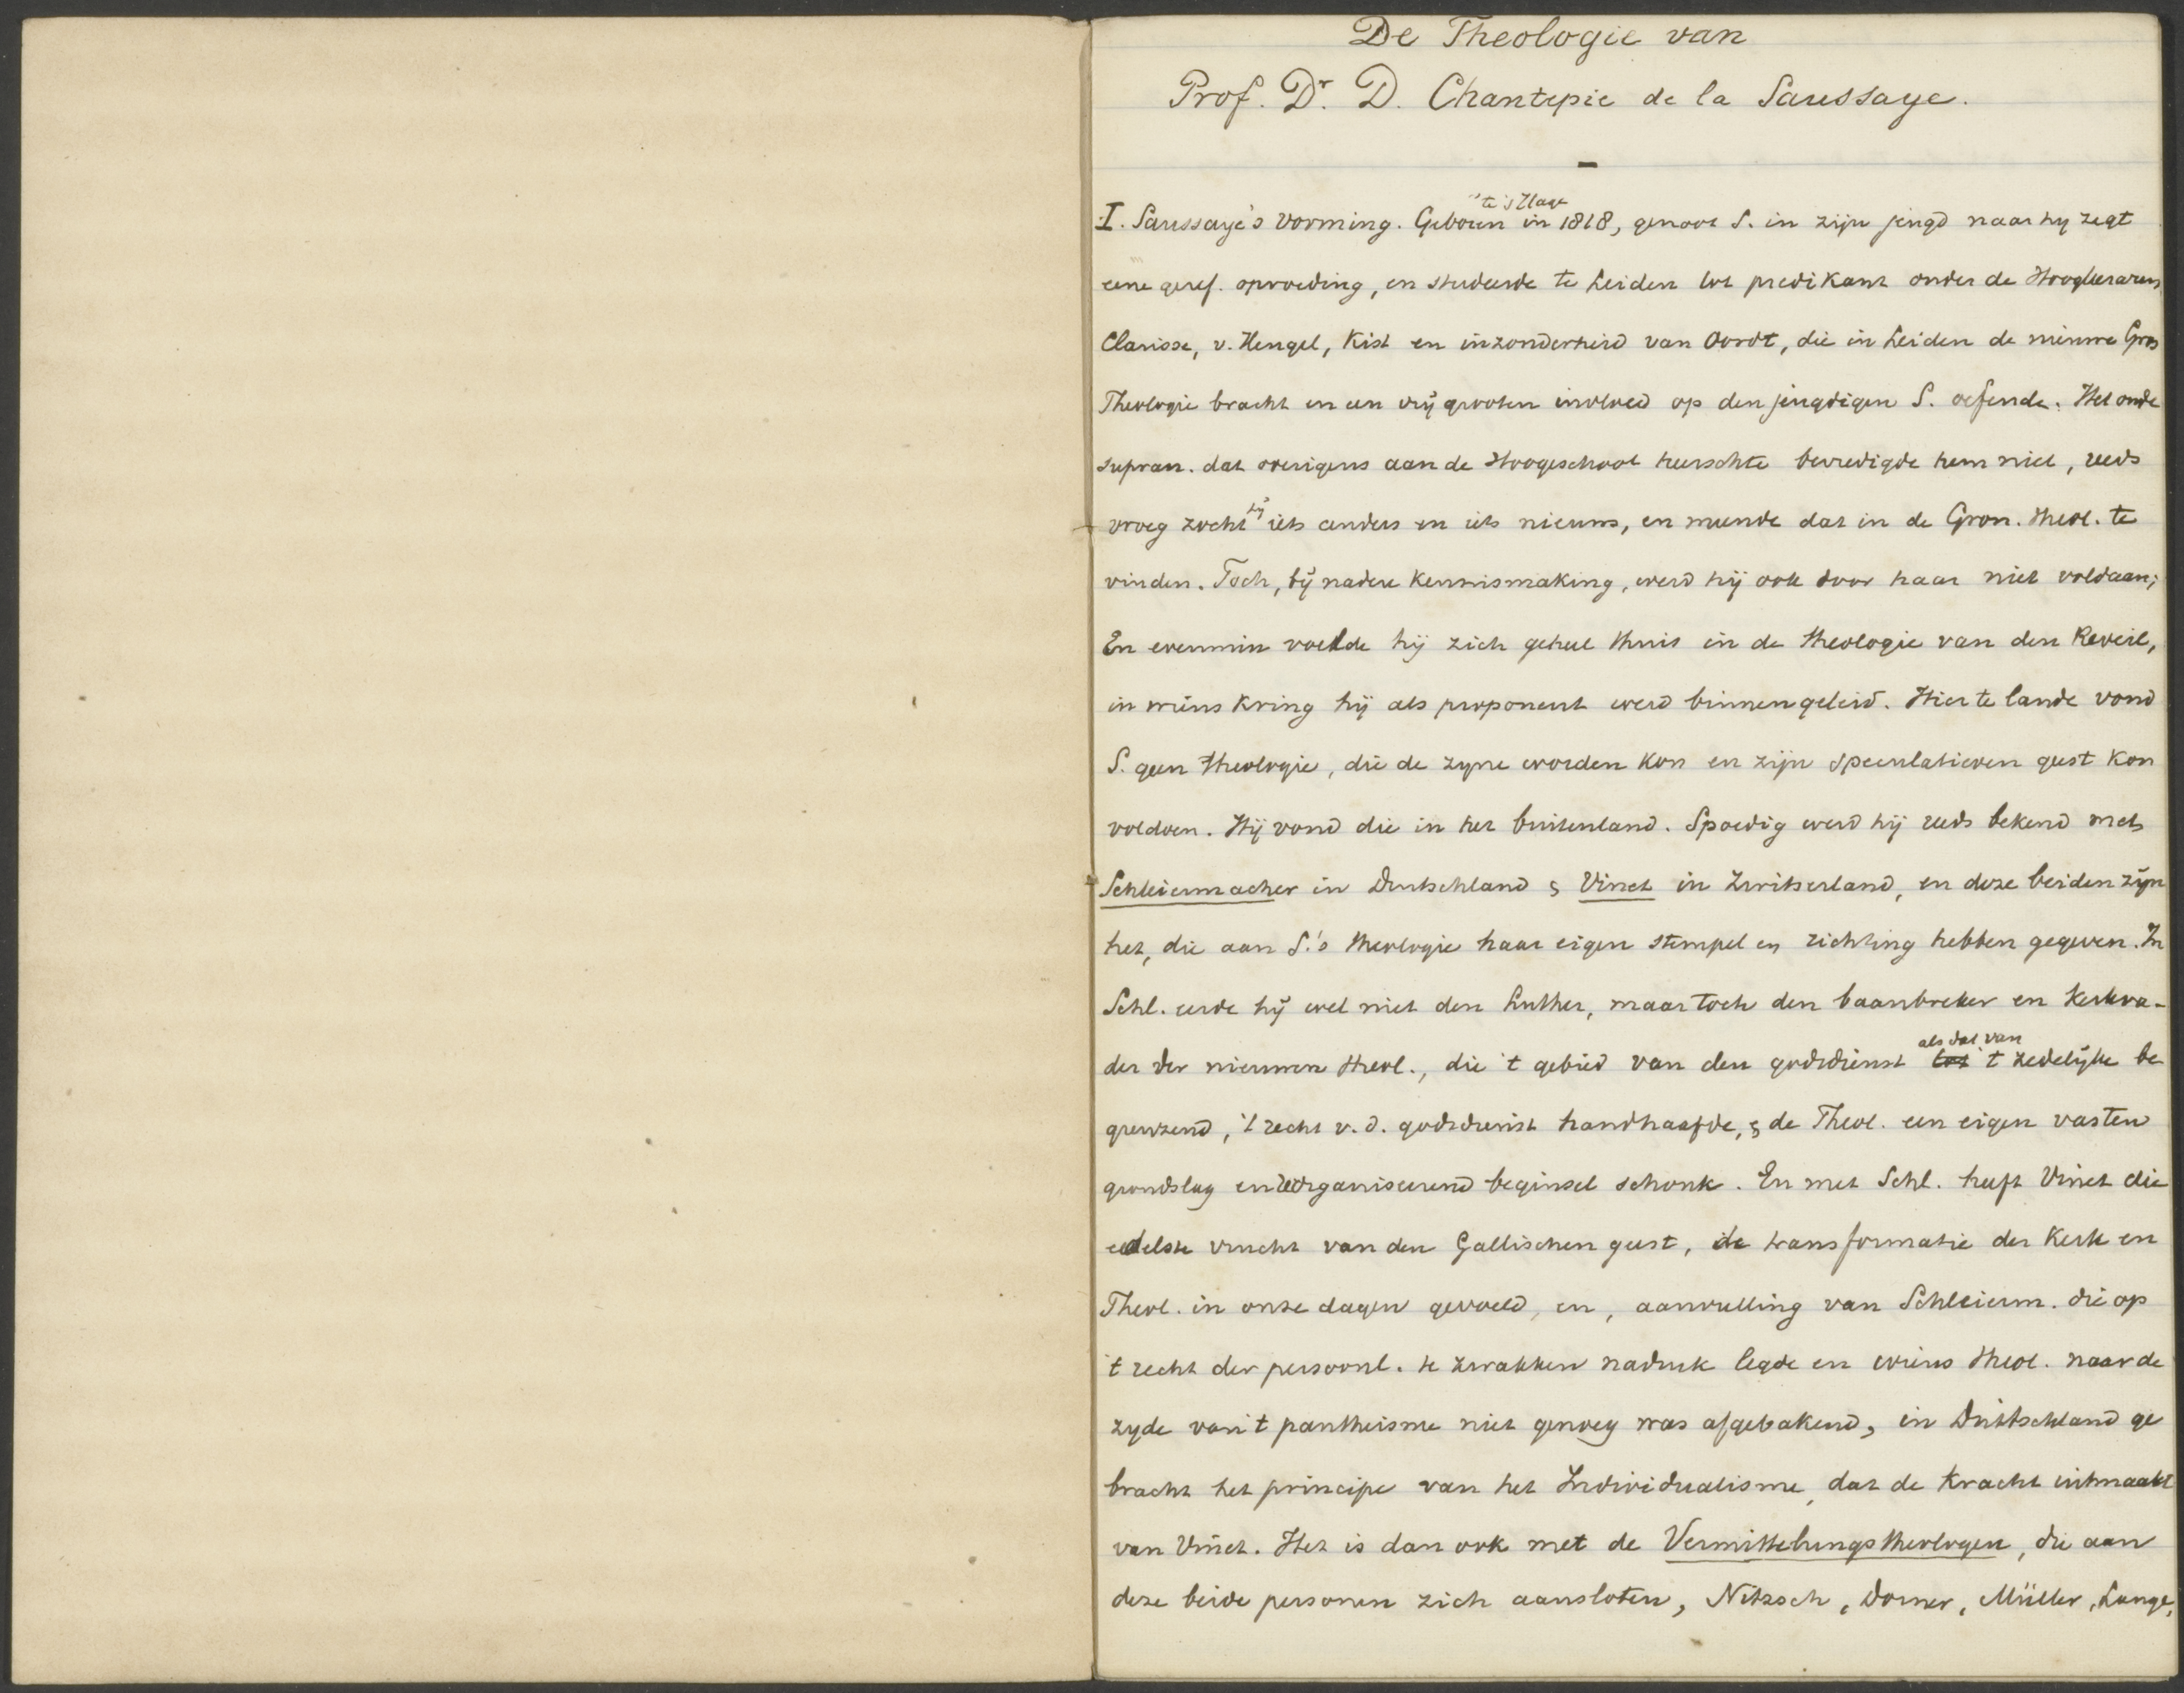 De Theologie van
Prof. Dr. D. Chantepie de la Saussaye.
te 's Hage
I. Saussaye's vorming. Geboren in 1818, genoot S. in zijn jeugd naar hy zegt
eene geref. opvoeding, en studeerde te Leiden tot predikant onder de Hoogleeraren
Clarisse, v. Hengel, Kist en inzonderheid van Oordt, die in Leiden de nieuwe Gron
Theologie bracht en een vrij grooten invloed op den jeugdigen S. oefende. Het oude
supran. dat overigens aan de Hoogeschool heerschte bevredigde hem niet, reeds
vroeg zocht hij iets anders en iets nieuws, en meende dat in de Gron. theol. te
vinden. Toch, bij nadere kennismaking, werd hij ook door haar niet voldaan;
En evenmin voelde hij zich geheel thuis in de theologie van den Reveil,
in wiens kring hij als proponent werd binnengeleid. Hier te lande vond
S. geen theologie, die de zyne worden kon en zijn speculatieven geest kon
voldoen. Hij vond die in het buitenland. Spoedig werd hij reeds bekend met
Schleiermacher in Duitschland & Vinet in Zwitserland, en deze beiden zijn
het, die aan S.'s theologie haar eigen stempel en richting hebben gegeven. In
Schl. eerde hij wel niet den Luther, maar toch den baanbreker en kerkva-
der der nieuwere theol., die 't gebied van den godsdienst tot als dat van 't zedelijke be
grenzend, 't recht v. d. godsdienst handhaafde, & de Theol. een eigen vasten
grondslag en reorganiseerend beginsel schonk. En met Schl. heeft Vinet die
eedelste vrucht van den Gallischen geest, de transformatie der Kerk en
Theol. in onze dagen gevoed, en, aanvulling van Schleierm. die op
't recht der persoonl. te zwakken nadruk legde en wiens theol. naar de
zyde van 't pantheisme niet genoeg was afgebakend, in Duitschland ge
bracht het principe van het Individualisme, dat de kracht uitmaakt
van Vinet. Het is dan ook met de Vermittelungstheologen, die aan
deze beide personen zich aansloten, Nitzsch, Dorner, Müller, Lange,